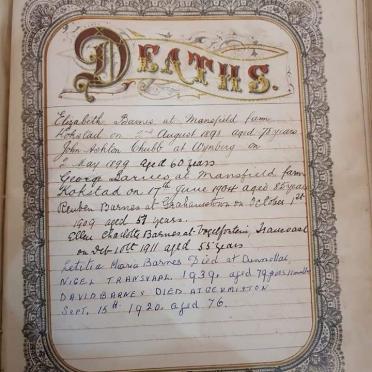 DEATHS.
Elizabeth Barnes at Mansfield farm
Kokstad on 2nd August 1898 aged 73 years
John Ashton Chubb at Wynberg on
2 May 1899 aged 60 years
George Barnes, at Mansfield farm
Kokstad on 17th June 1904 aged 86 years
Reuben Barnes at Grahamstown on October 1st
1909 aged 57 years.
Ellen Charlotte Barnes at Transvaal
on Feb 10th 1911 aged 55 years
Letitia Maria Barnes Died at Dunnottar
NIGEL TRANSVAAL 1939. aged 79 years
DAVID BARNES DIED AT GERMISTON
SEPT. 15th 1920. aged 76.